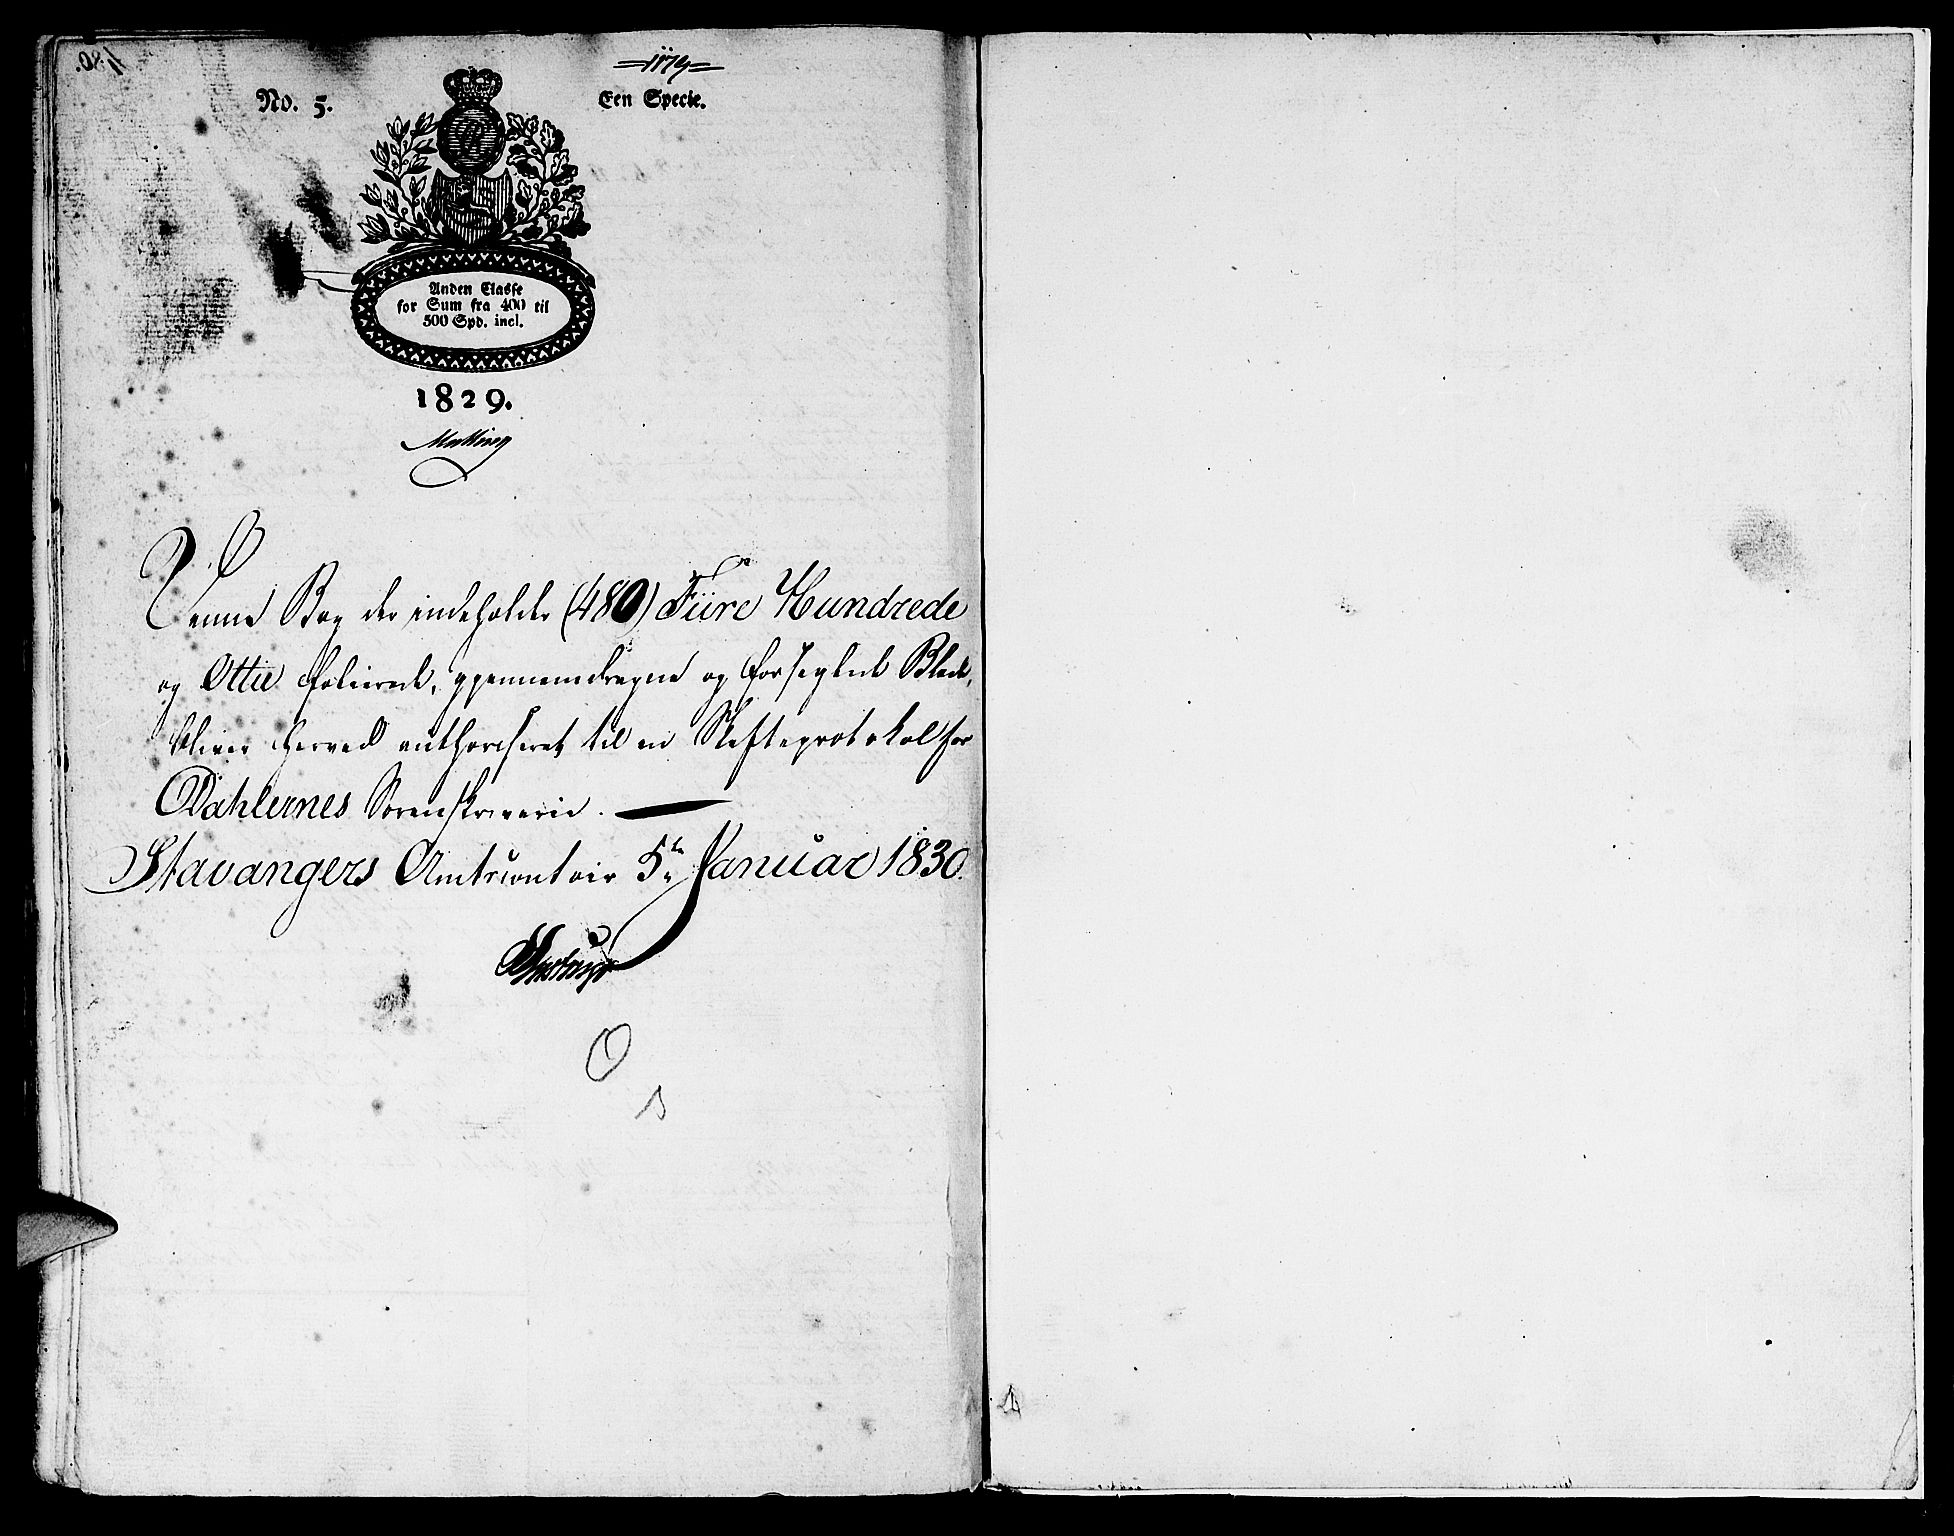 No. 5.
Een Specie.
Anden Classe
for Sum fra 400 til
500 Spd. incl.
1829.
Malling
Denne Bog der indeholder (480) Fiire Hundrede
og Ottie folierede, gjennemdragne og forseglede Blade,
bliver herved authoriseret til en Skifteprotokol for
Dahlernes Sorenskriverie.
Stavangers Amtscontoir 5te Januar 1830.